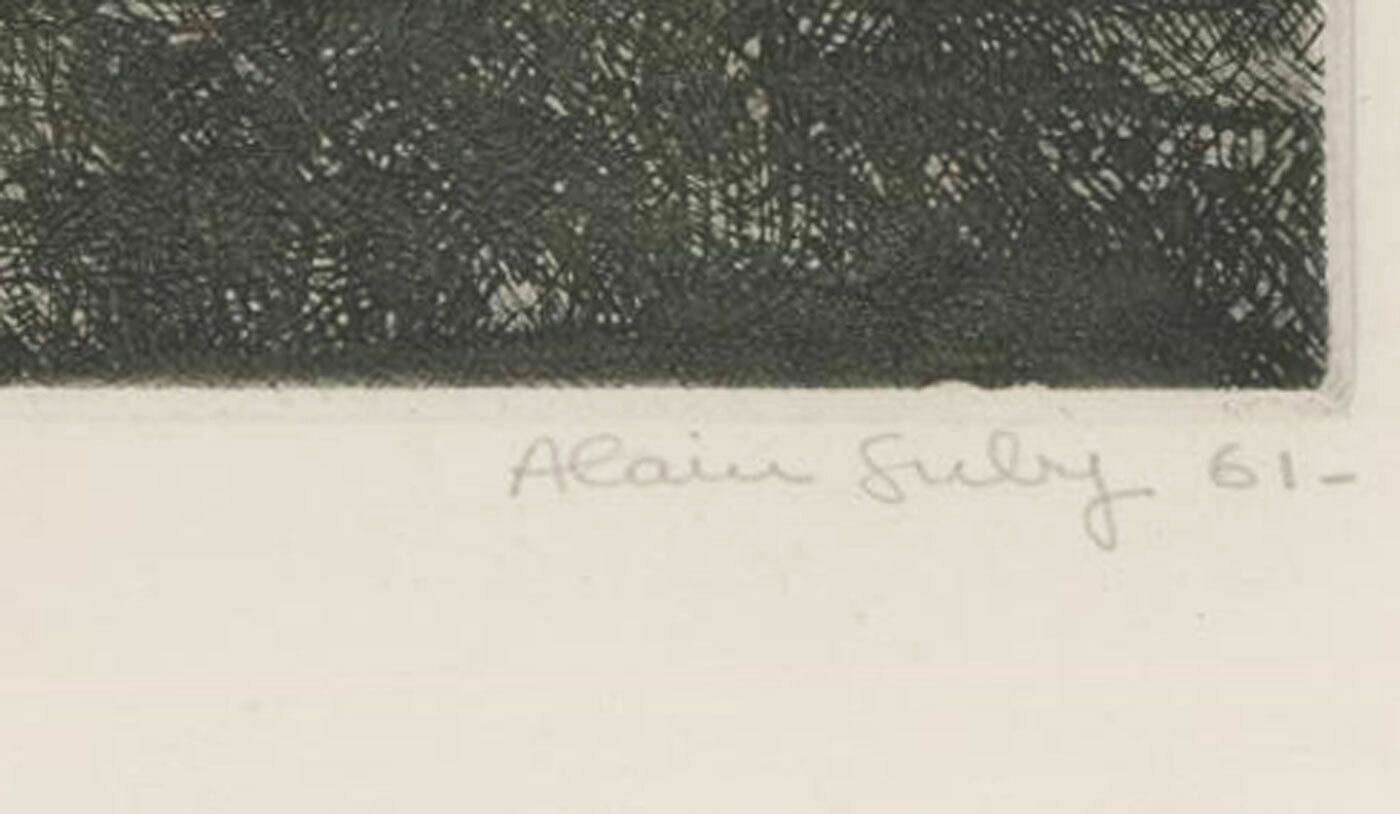 Alain Suby 61-